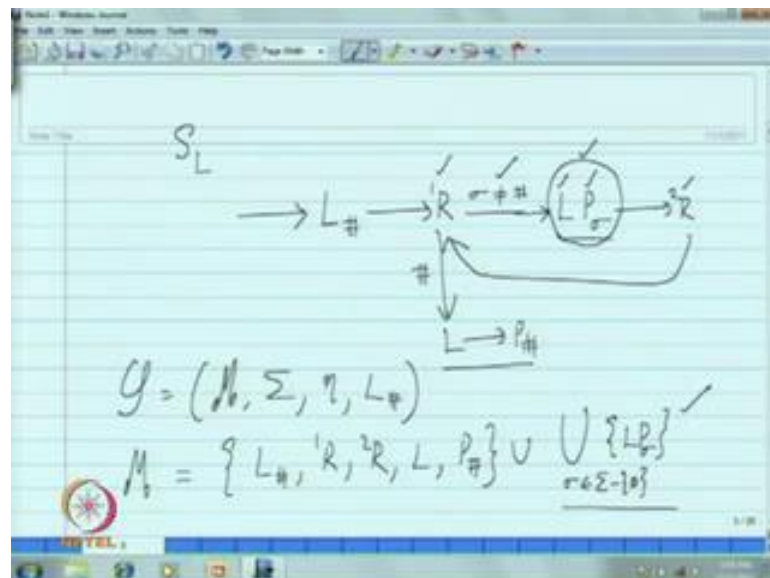 File Edit View Insert Actions Tools Help
Page Width
Note Title
S_L
→ L_# → ¹R —σ≠#→ L P_σ → ²R
#
L → P_#
𝒢 = (M, Σ, η, L_#)
M = { L_#, ¹R, ²R, L, P_# } ∪ ⋃_{σ∈Σ-{#}} {LP_σ}
NPTEL